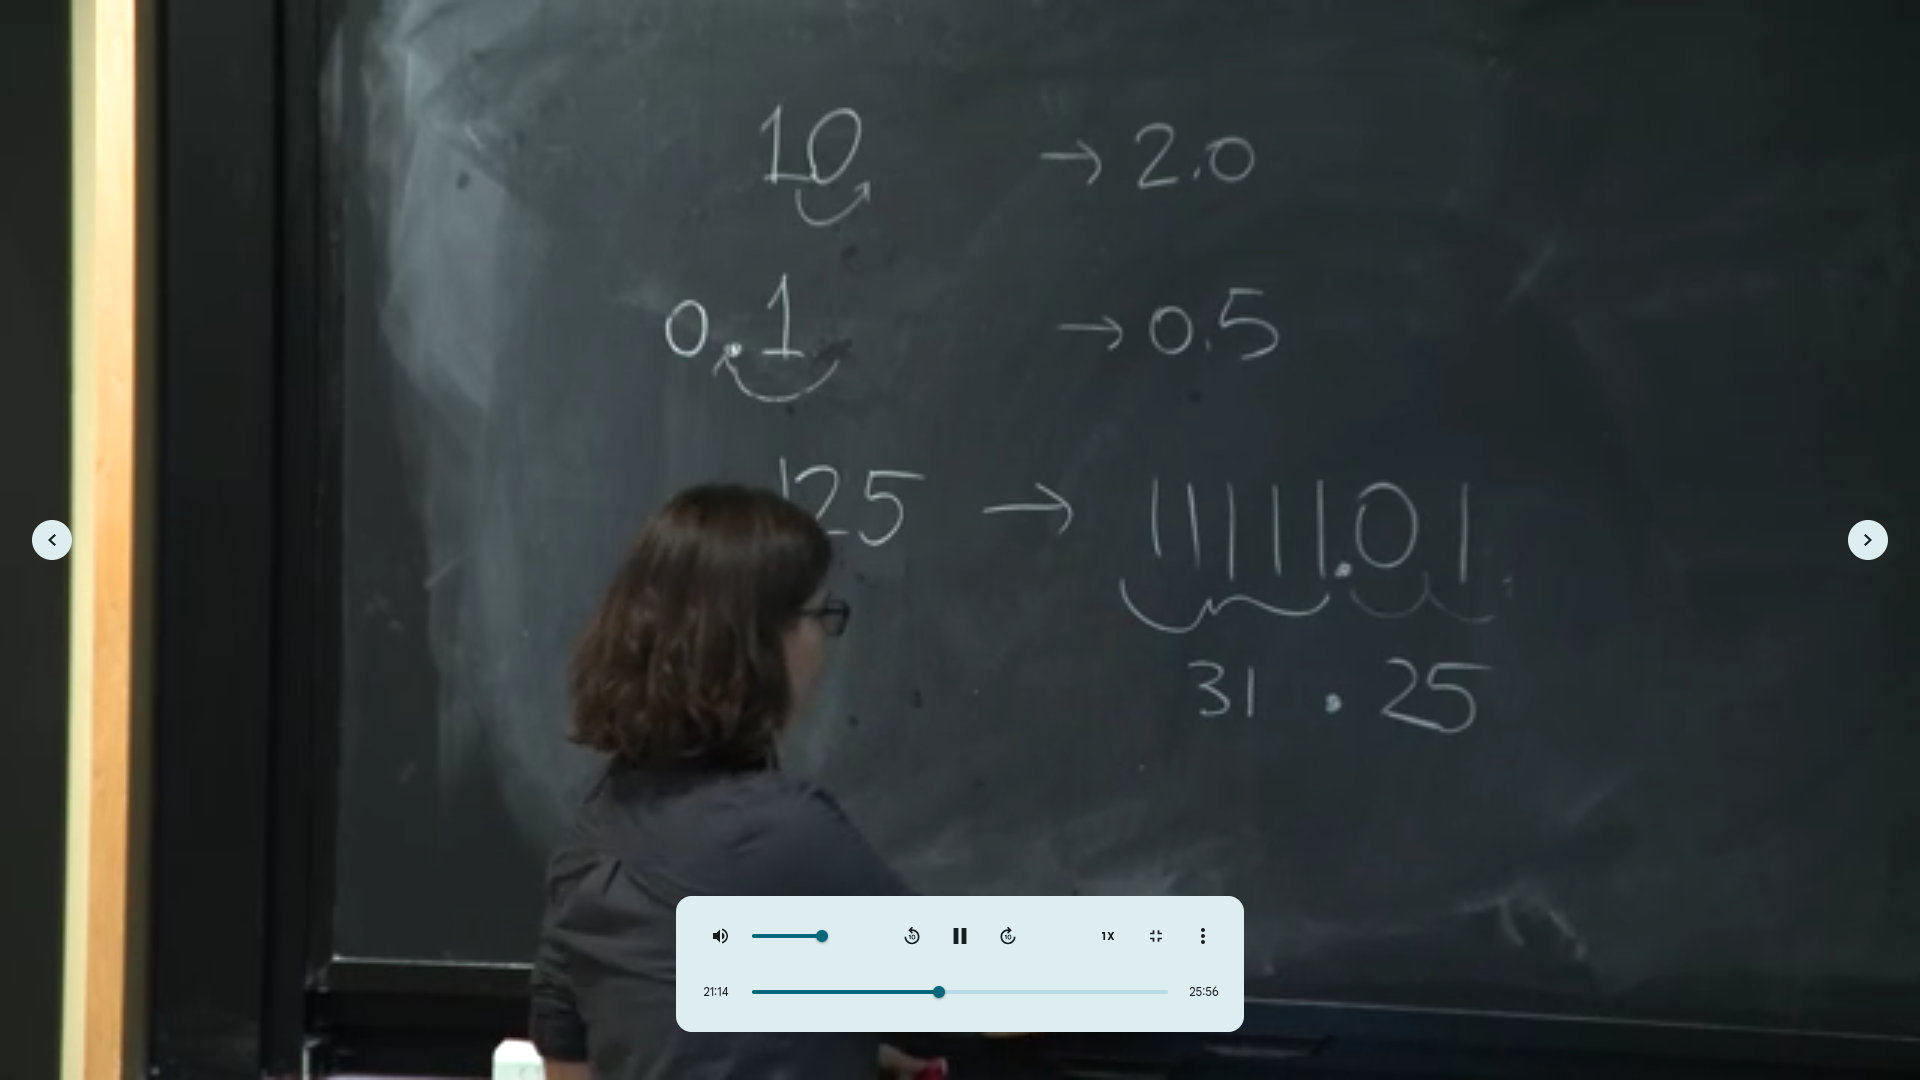 10 → 2.0
0.1 → 0.5
125 → 11111.01
31 . 25
10
10
1X
21:14
25:56